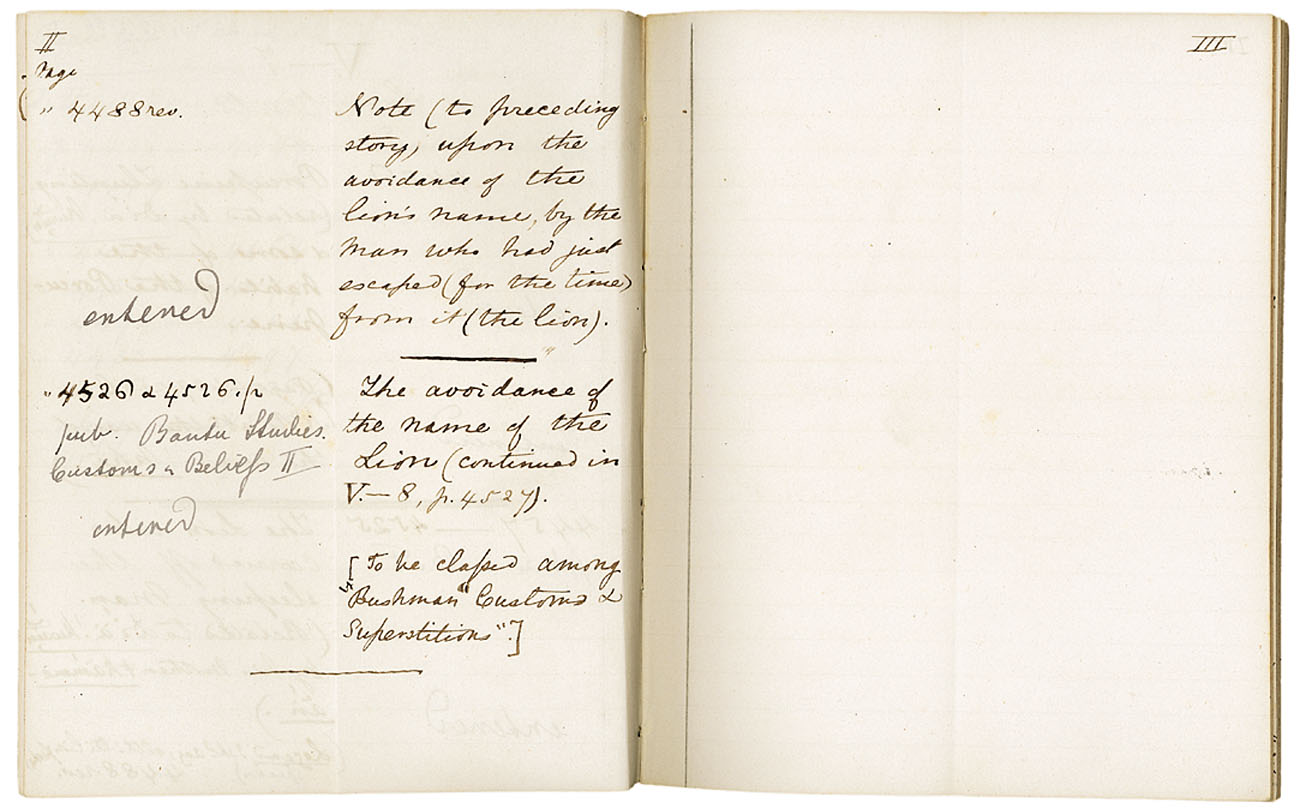 II
Page
" 4488 rev.
Note (to preceding
story) upon the
avoidance of the
lion's name, by the
man who had just
escaped (for the time)
from it (the lion).
entered
" 4526 & 4526.½
pub. Bantu Studies.
Customs & Beliefs II
entered
The avoidance of
the name of the
Lion (continued in
V.—8, p. 4527).
[To be classed among
"Bushman Customs &
Superstitions".]
III